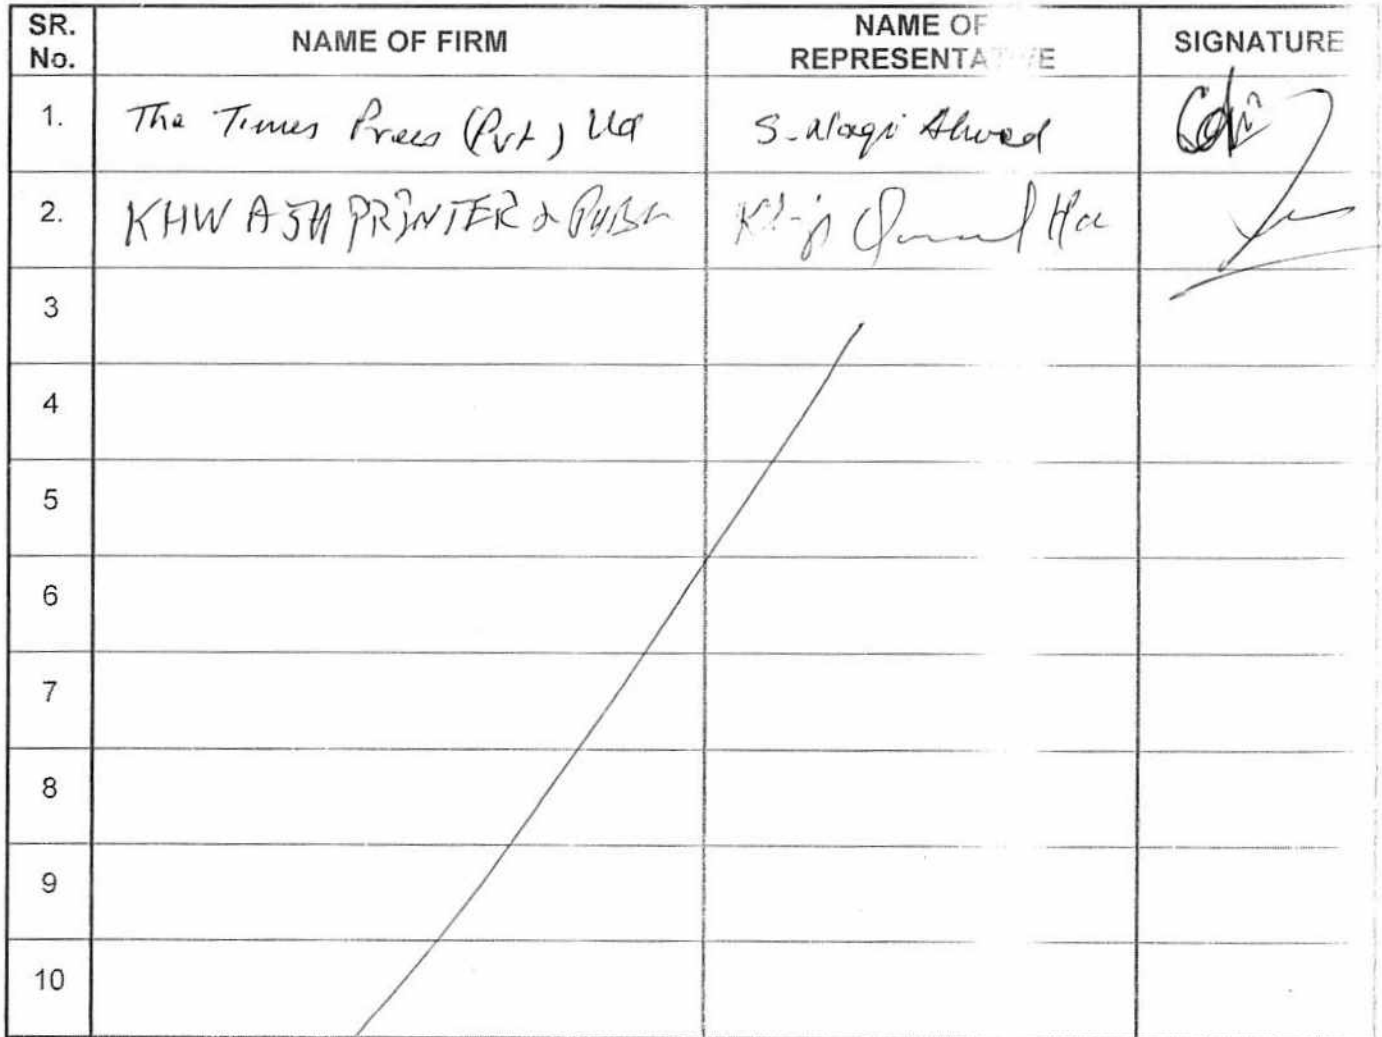 SR. No. NAME OF FIRM NAME OF REPRESENTATIVE SIGNATURE
1. The Times Press (Pvt) Ltd S. Naqi Ahmad
2. KHWAJA PRINTER & Publ
3
4
5
6
7
8
9
10